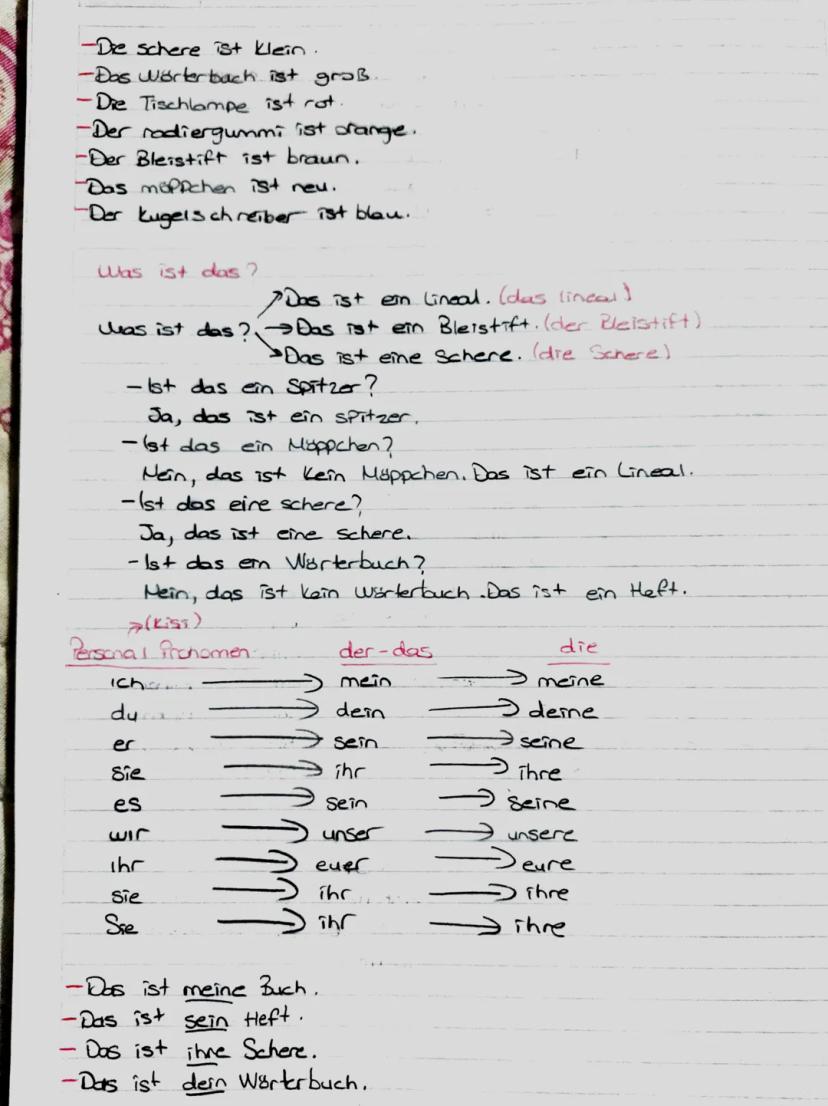 -Die schere ist klein.
-Das Wörterbuch ist groß.
-Die Tischlampe ist rot.
-Der radiergummi ist orange.
-Der Bleistift ist braun.
-Das mäppchen ist neu.
-Der kugelschreiber ist blau.
Was ist das?
Das ist ein Lineal. (das lineal)
Was ist das? →Das ist ein Bleistift. (der Bleistift)
Das ist eine Schere. (die Schere)
-Ist das ein Spitzer?
Ja, das ist ein spitzer.
-Ist das ein Mäppchen?
Nein, das ist kein Mäppchen. Das ist ein Lineal.
-Ist das eine schere?
Ja, das ist eine schere.
-Ist das ein Wörterbuch?
Nein, das ist kein wörterbuch. Das ist ein Heft.
→(kiss)
Personal Pronomen der-das die
ich → mein → meine
du → dein → deine
er → sein → seine
sie → ihr → ihre
es → sein → seine
wir → unser → unsere
ihr → euer → eure
sie → ihr → ihre
Sie → ihr → ihre
-Das ist meine Buch.
-Das ist sein Heft.
- Das ist ihre Schere.
-Das ist dein Wörterbuch.